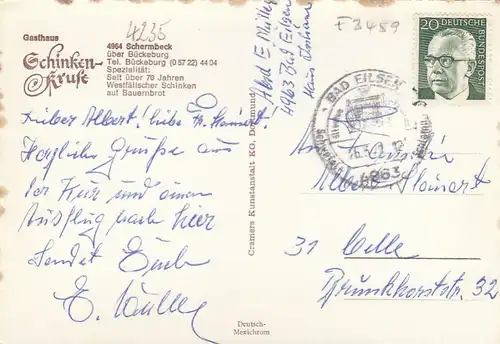 4235
F3459
Gasthaus
Schinken-
Kruft
4964 Schermbeck
über Bückeburg
Tel. Bückeburg (0 57 22) 44 04
Spezialität:
Seit über 70 Jahren
Westfälischer Schinken
auf Bauernbrot
Lieber Albert, liebe Fr. Steinert!
Herzliche Grüße aus
der Kur und einem
Ausflug nach hier
sendet Euch
E. Müller
Abs. E. Müller
4963 Bad Eilsen
Haus
Cramers Kunstanstalt KG, Dortmund
Deutsch-
Mexichrom
20
DEUTSCHE
BUNDESPOST
BAD EILSEN
4963
Familie
Albert Steinert
31 Celle
Brunkhorststr. 32